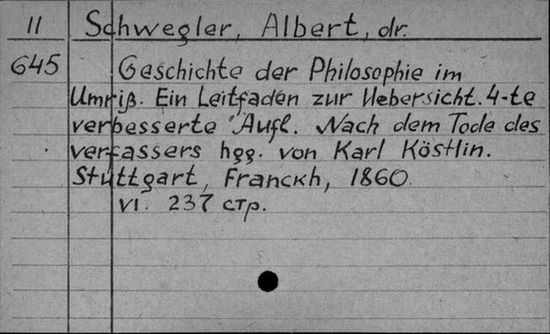 II Schwegler, Albert, dr.
645 Geschichte der Philosophie im
Umriß. Ein Leitfaden zur Uebersicht. 4-te
verbesserte Aufl. Nach dem Tode des
verfassers hgg. von Karl Köstlin.
Stuttgart, Franckh, 1860.
VI. 237 стр.